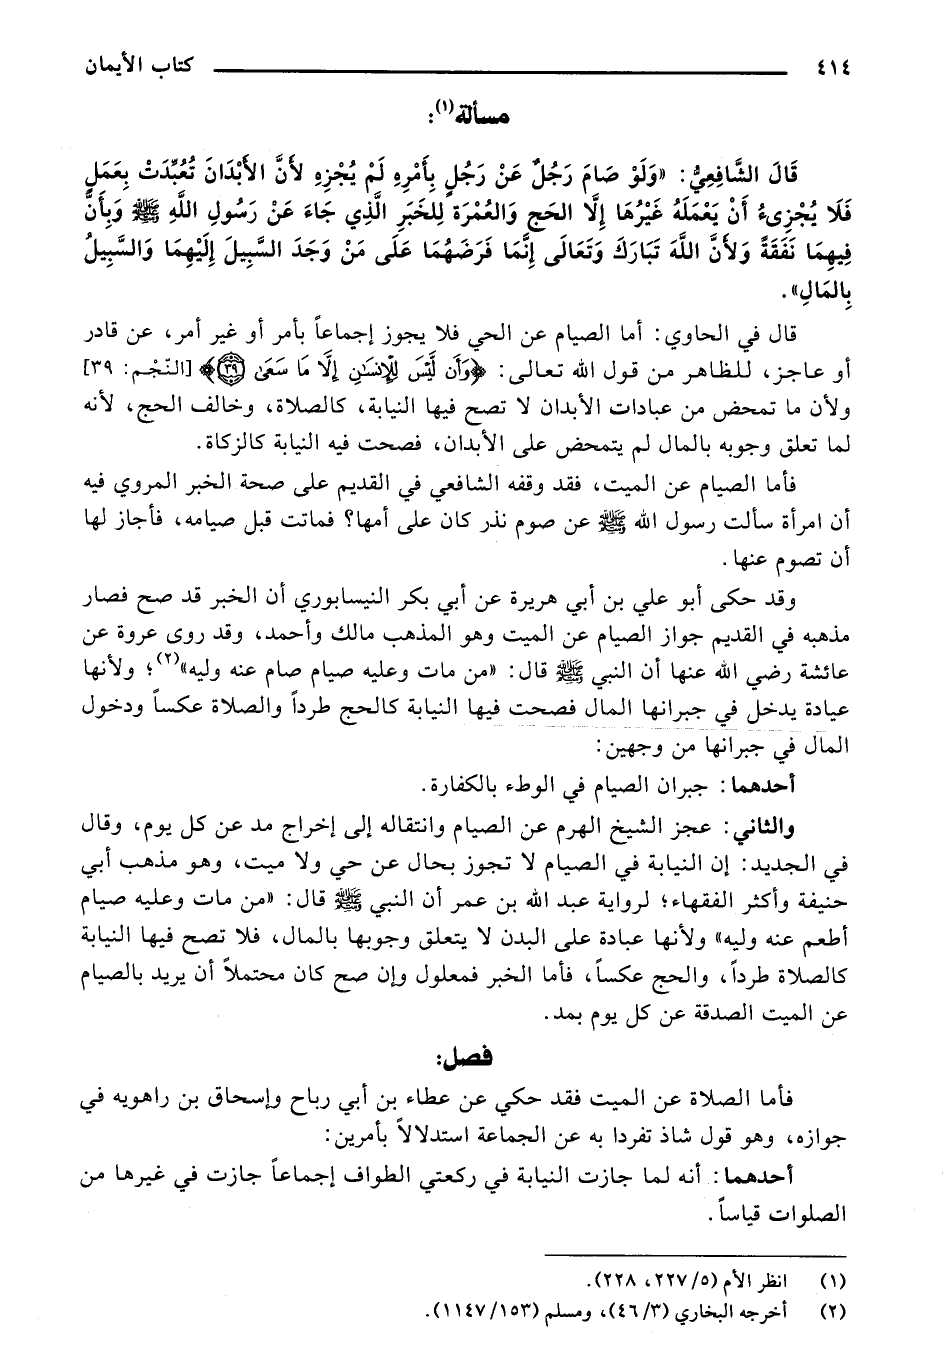 ٤١٤ كتاب الأيمان
مسألة(١):
قَالَ الشَّافِعِيُّ: «وَلَوْ صَامَ رَجُلٌ عَنْ رَجُلٍ بِأَمْرِهِ لَمْ يُجْزِهِ لأَنَّ الأَبْدَانَ تُعُبِّدَتْ بِعَمَلٍ
فَلَا يُجْزِىءُ أَنْ يَعْمَلَهُ غَيْرُهَا إِلَّا الحَج وَالعُمْرَة لِلخَبَرِ الَّذِي جَاءَ عَنْ رَسُولِ اللَّهِ ﷺ وَبِأَنَّ
فِيهِمَا نَفَقَةً وَلأَنَّ اللَّهَ تَبَارَكَ وَتَعَالَى إِنَّمَا فَرَضَهُمَا عَلَى مَنْ وَجَدَ السَّبِيلَ إِلَيْهِمَا وَالسَّبِيلُ
بِالمَالِ».
قال في الحاوي: أما الصيام عن الحي فلا يجوز إجماعاً بأمر أو غير أمر، عن قادر
أو عاجز، للظاهر من قول الله تعالى: ﴿وَأَن لَّيْسَ لِلْإِنسَٰنِ إِلَّا مَا سَعَىٰ ٣٩﴾ [النّجْم: ٣٩]
ولأن ما تمحض من عبادات الأبدان لا تصح فيها النيابة، كالصلاة، وخالف الحج، لأنه
لما تعلق وجوبه بالمال لم يتمحض على الأبدان، فصحت فيه النيابة كالزكاة.
فأما الصيام عن الميت، فقد وقفه الشافعي في القديم على صحة الخبر المروي فيه
أن امرأة سألت رسول الله ﷺ عن صوم نذر كان على أمها؟ فماتت قبل صيامه، فأجاز لها
أن تصوم عنها.
وقد حكى أبو علي بن أبي هريرة عن أبي بكر النيسابوري أن الخبر قد صح فصار
مذهبه في القديم جواز الصيام عن الميت وهو المذهب مالك وأحمد، وقد روى عروة عن
عائشة رضي الله عنها أن النبي ﷺ قال: «من مات وعليه صيام صام عنه وليه»(٢)؛ ولأنها
عبادة يدخل في جبرانها المال فصحت فيها النيابة كالحج طرداً والصلاة عكساً ودخول
المال في جبرانها من وجهين:
أحدهما: جبران الصيام في الوطء بالكفارة.
والثاني: عجز الشيخ الهرم عن الصيام وانتقاله إلى إخراج مد عن كل يوم، وقال
في الجديد: إن النيابة في الصيام لا تجوز بحال عن حي ولا ميت، وهو مذهب أبي
حنيفة وأكثر الفقهاء؛ لرواية عبد الله بن عمر أن النبي ﷺ قال: «من مات وعليه صيام
أطعم عنه وليه» ولأنها عبادة على البدن لا يتعلق وجوبها بالمال، فلا تصح فيها النيابة
كالصلاة طرداً، والحج عكساً، فأما الخبر فمعلول وإن صح كان محتملاً أن يريد بالصيام
عن الميت الصدقة عن كل يوم بمد.
فصل:
فأما الصلاة عن الميت فقد حكي عن عطاء بن أبي رباح وإسحاق بن راهويه في
جوازه، وهو قول شاذ تفردا به عن الجماعة استدلالاً بأمرين:
أحدهما: أنه لما جازت النيابة في ركعتي الطواف إجماعاً جازت في غيرها من
الصلوات قياساً.
(١) انظر الأم (٥/٢٢٧، ٢٢٨).
(٢) أخرجه البخاري (٣/٤٦)، ومسلم (١٥٣/١١٤٧).